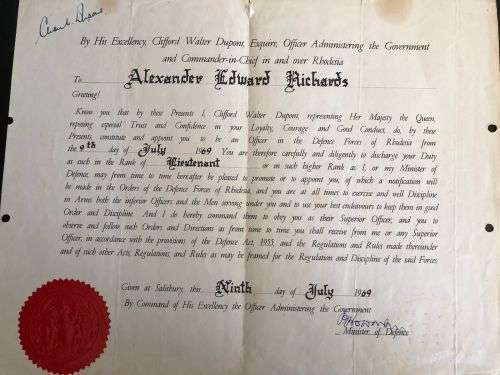 By His Excellency, Clifford Walter Dupont, Esquire, Officer Administering the Government
and Commander-in-Chief in and over Rhodesia
To Alexander Edward Richards
Greeting!
Know you that by these Presents I, Clifford Walter Dupont, representing Her Majesty the Queen,
reposing especial Trust and Confidence in your Loyalty, Courage and Good Conduct, do, by these
Presents, constitute and appoint you to be an Officer in the Defence Forces of Rhodesia from
the 9th day of July 1969 You are therefore carefully and diligently to discharge your Duty
as such in the Rank of Lieutenant or in such higher Rank as I, or my Minister of
Defence, may from time to time hereafter be pleased to promote or to appoint you, of which a notification will
be made in the Orders of the Defence Forces of Rhodesia, and you are at all times to exercise and well Discipline
in Arms both the inferior Officers and the Men serving under you and to use your best endeavours to keep them in good
Order and Discipline And I do hereby command them to obey you as their Superior Officer, and you to
observe and follow such Orders and Directions as from time to time you shall receive from me or any Superior
Officer, in accordance with the provisions of the Defence Act, 1955, and the Regulations and Rules made thereunder
and of such other Acts, Regulations, and Rules as may be framed for the Regulation and Discipline of the said Forces
Given at Salisbury, this Ninth day of July 1969
By Command of His Excellency the Officer Administering the Government
Minister of Defence